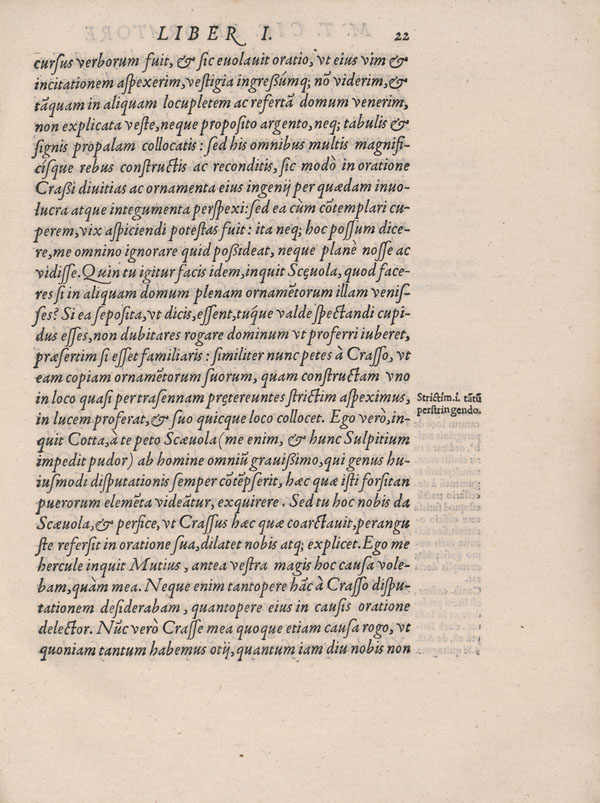 LIBER I. 22
cursus verborum fuit, & sic euolauit oratio, vt eius vim &
incitationem aspexerim, vestigia ingressúmq; nō viderim, &
tāquam in aliquam locupletem ac refertā domum venerim,
non explicata veste, neque proposito argento, neq; tabulis &
signis propalam collocatis: sed his omnibus multis magnifi-
císque rebus constructis ac reconditis, sic modò in oratione
Crassi diuitias ac ornamenta eius ingenij per quædam inuo-
lucra atque integumenta perspexi: sed ea cùm cōtemplari cu-
perem, vix aspiciendi potestas fuit: ita neq; hoc possum dice-
re, me omnino ignorare quid possideat, neque planè nosse ac
vidisse. Quin tu igitur facis idem, inquit Scęuola, quod face-
res si in aliquam domum plenam ornamētorum illam venis-
ses? Si ea seposita, vt dicis, essent, túque valde spectandi cupi-
dus esses, non dubitares rogare dominum vt proferri iuberet,
præsertim si esset familiaris: similiter nunc petes à Crasso, vt
eam copiam ornamētorum suorum, quam constructam vno
in loco quasi per trasennam prętereuntes strictim aspeximus,
in lucem proferat, & suo quicque loco collocet. Ego verò, in-
quit Cotta, à te peto Scæuola (me enim, & hunc Sulpitium
impedit pudor) ab homine omniū grauissimo, qui genus hu-
iusmodi disputationis semper cōtēpserit, hæc quæ isti forsitan
puerorum elemēta videātur, exquirere. Sed tu hoc nobis da
Scæuola, & perfice, vt Crassus hæc quæ coarctauit, perangu
ste refersit in oratione sua, dilatet nobis atq; explicet. Ego me
hercule inquit Mutius, antea vestra magis hoc causa vole-
bam, quàm mea. Neque enim tantopere hāc à Crasso dispu-
tationem desiderabam, quantopere eius in causis oratione
delector. Nūc verò Crasse mea quoque etiam causa rogo, vt
quoniam tantum habemus otij, quantum iam diu nobis non
Strictim .i. tātū
perstringendo.